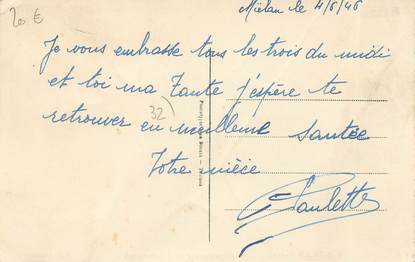 20 €
Miélan le 4/6/46
Je vous embrasse tous les trois du midi
et toi ma Tante j'espère te
32
retrouver en meilleure santée
Votre nièce
Paulette